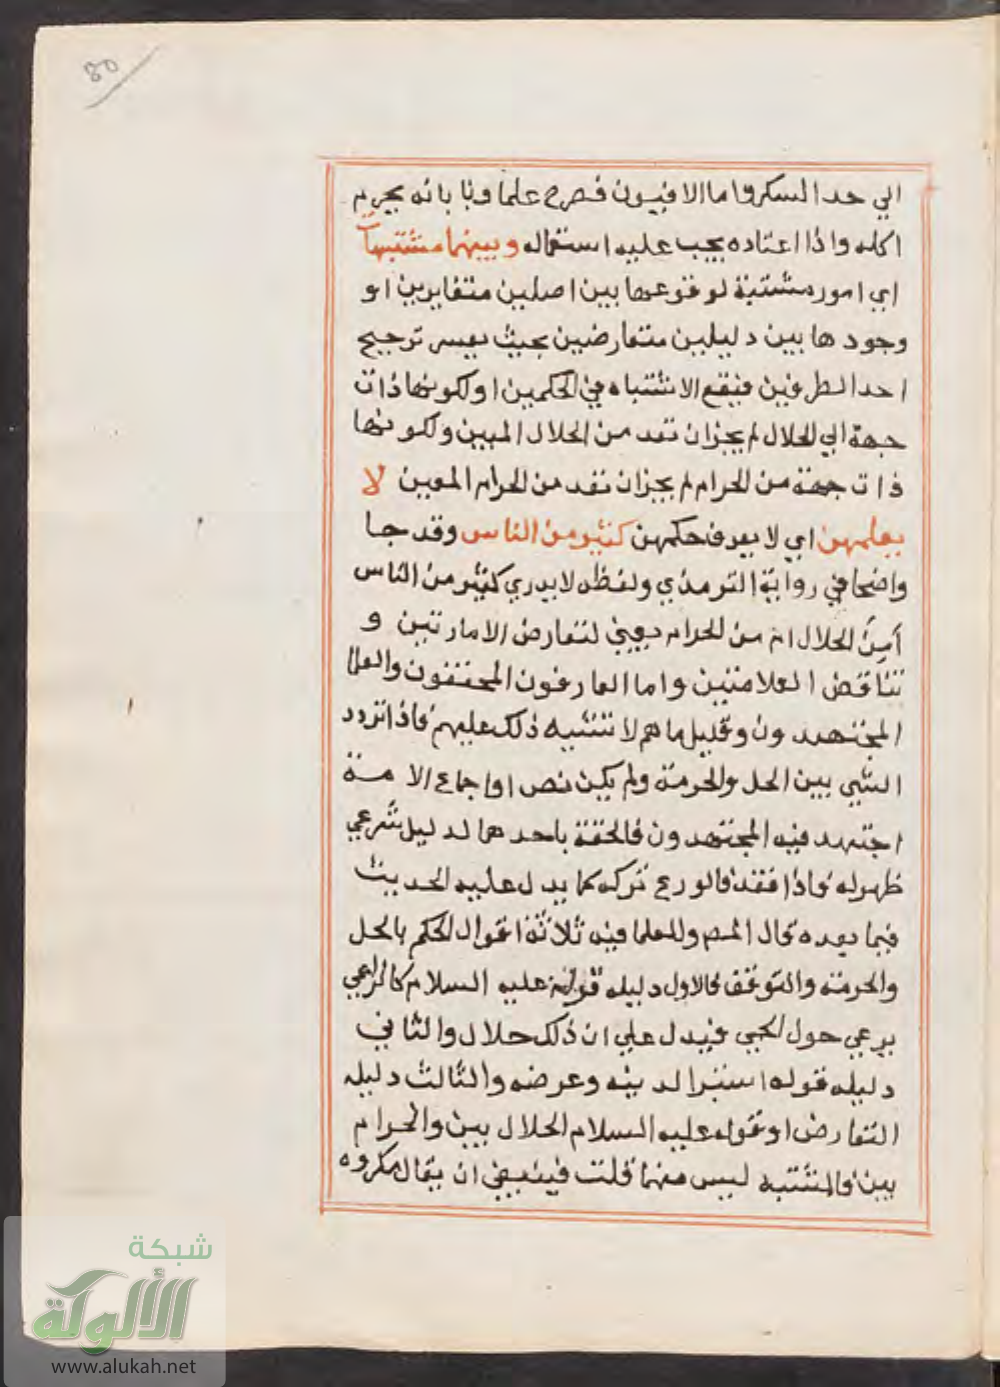 80
الي حد السكر واما الافيون فصرح علماونا بانه يحرم
اكله واذا اعتاده يجب عليه استعماله وبينهما مشتبهات
اي امور مشتبة لوقوعها بين اصلين متغايرين او
وجودها بين دليلين متعارضين بحيث يعسر ترجيح
احد الطرفين فيقع الاشتباه في الحكمين او لكونها ذات
جهة الي الحلال لم يجز ان تعد من الحلال المبين ولكونها
ذات جهة من الحرام لم يجز ان تعد من الحرام المعين لا
يعلمهن اي لا يعرف حكمهن كثير من الناس وقد جا
واضحا في رواية الترمذي ولفظه لا يدري كثير من الناس
أمِنَ الحلال ام من الحرام يعني لتعارض الامارتين و
تناقض العلامتين واما العارفون المحققون والعلما
المجتهدون وقليل ما هم لا تشتبه ذلك عليهم فاذا تردد
الشي بين الحل والحرمة ولم يكن نص او اجماع الامة
اجتهد فيه المجتهدون فالحقة باحدهما لدليل شرعي
ظهر له فاذا فقد فالورع تركه كما يدل عليه الحديث
فيما بعده قال المص وللعلما فيه ثلاثة اقوال الحكم بالحل
والحرمة والتوقف فالاول دليله قوله عليه السلام كالراعي
يرعي حول الحمي فيدل علي ان ذلك حلال والثاني
دليله قوله استبرا لدينه وعرضه والثالث دليله
التعارض او قوله عليه السلام الحلال بين والحرام
بين فالمشتبه ليس منهما قلت فينبغي ان يقال مكروه
شبكة
الألوكة
www.alukah.net